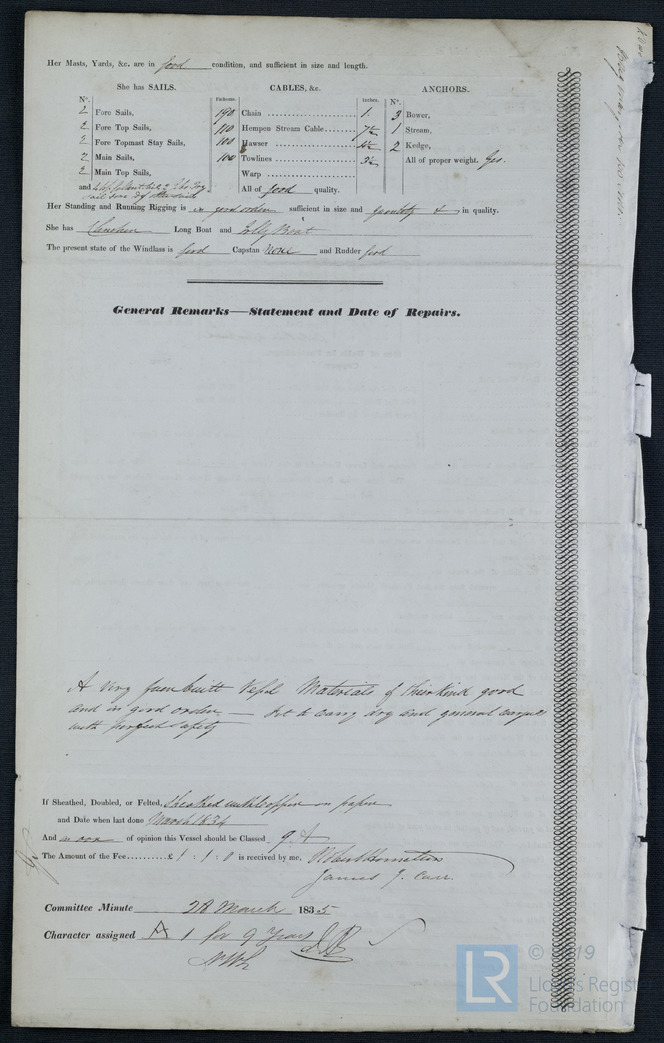 Her Masts, Yards, &c. are in good condition, and sufficient in size and length.
She has SAILS.
CABLES, &c.
ANCHORS.
N°. Fathoms. Inches. N°.
2 Fore Sails, 190 Chain 1. 3 Bower,
2 Fore Top Sails, 110 Hempen Stream Cable 7½ 1 Stream,
2 Fore Topmast Stay Sails, 100 Hawser 4½ 2 Kedge,
2 Main Sails, 100 Towlines 3½ All of proper weight. Yes.
2 Main Top Sails, Warp
and All of good quality.
Her Standing and Running Rigging is in good order sufficient in size and quantity & in quality.
She has Long Boat and Jolly Boat
The present state of the Windlass is good Capstan None and Rudder good
General Remarks—Statement and Date of Repairs.
A very built Vessel Materials of their kind good
and in good order — fit to carry dry and general cargoes
with perfect safety
If Sheathed, Doubled, or Felted, Sheathed with Copper on paper
and Date when last done March 1834
And of opinion this Vessel should be Classed 9 A
The Amount of the Fee £ 1 : 1 : 0 is received by me,
James J. Carr.
Committee Minute 28 March 1835
Character assigned A 1 for 9 Years
LR
© 2019
Lloyd's Register
Foundation